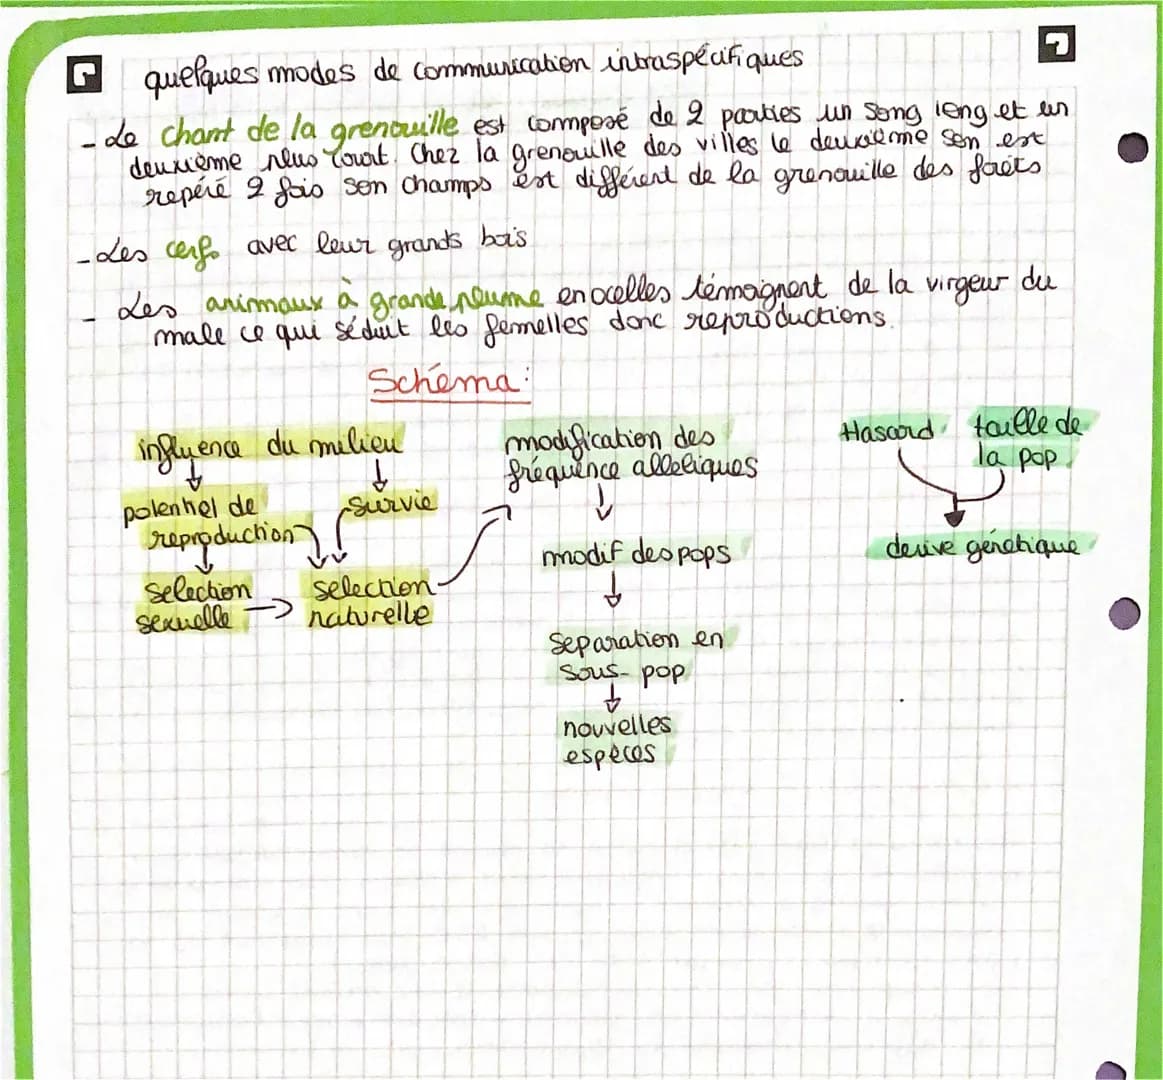 quelques modes de communication intraspécifiques
- Le chant de la grenouille est composé de 2 parties un song long et un
deuxième plus court. Chez la grenouille des villes le deuxième son est
repéré 2 fois son champs est différent de la grenouille des faêts
- Les cerfs avec leur grands bois
- Les animaux à grande plume en ocelles témoignent de la virgeur du
male ce qui séduit les femelles donc reproductions.
Schéma:
influence du milieu
potentiel de
reproduction
survie
selection
sexuelle
selection
naturelle
modification des
fréquence alleliques
modif des pops
Separation en
sous-pop
nouvelles
espèces
Hasard
taille de
la pop
derive génétique